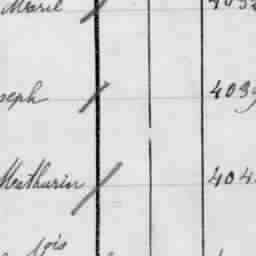 Marie
seph 4039
Mathurin 404
çois